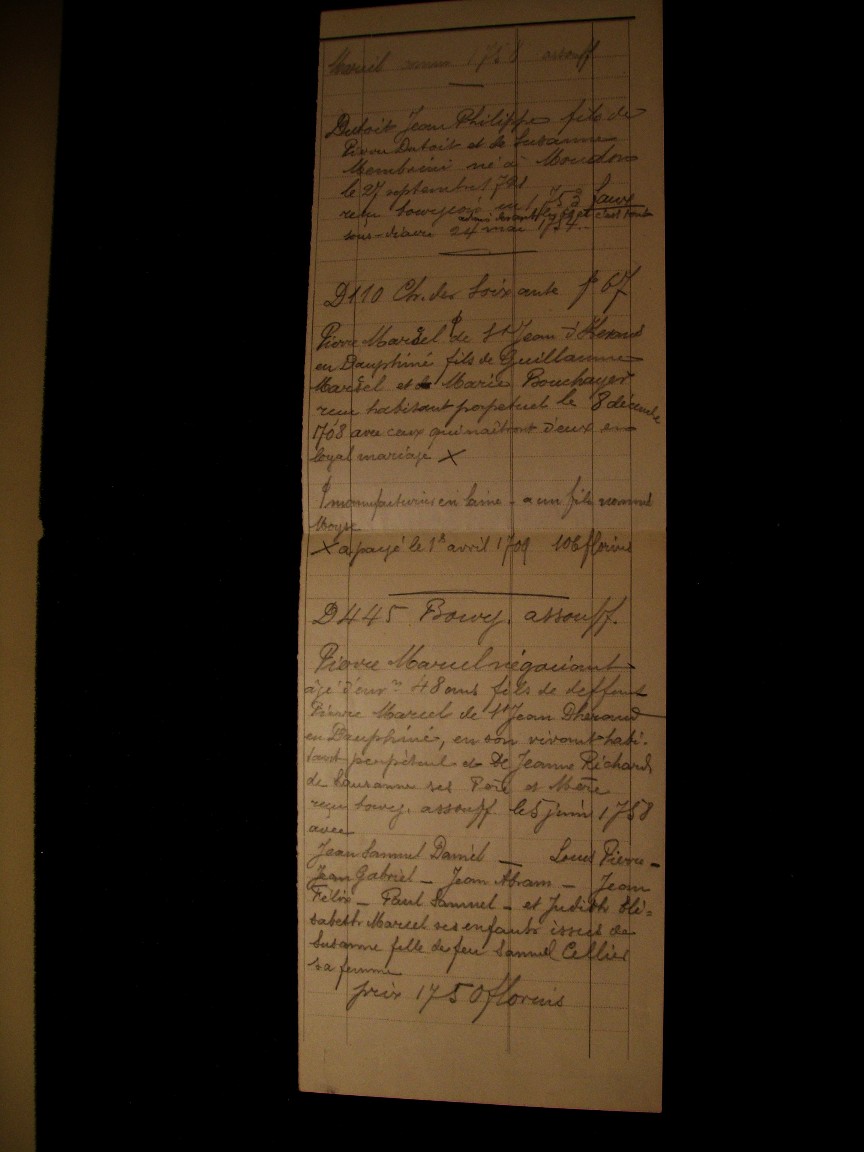 Marcel 1758 assouff
Dutoit Jean Philippe fils de
Pierre Dutoit et de Susanne
né à Moudon
le 27 septembre 1721
reçu bourgeois en 1753 faux
sous-diacre 24 mai 1754
D110 Ch. des Soixante fo 67
Pierre Marcel de St Jean d'Heraud
en Dauphiné fils de Guillaume
Marcel et de Marie Bouchayer
reçu habitant perpetuel le 8 décembre
1708 avec ceux qui naîtront d'eux en
loyal mariage X
manufacturier en laine - a un fils nommé
Moyse
X a payé le 1r avril 1709 108 florins
D445 Bourg. assouff.
Pierre Marcel négociant
âgé d'envn 48 ans fils de deffunt
Pierre Marcel de St Jean Dheraud
en Dauphiné, en son vivant habi-
tant perpétuel et de Jeanne Richard
de Lausanne ses Père et Mère
reçu bourg. assouff le 5 juin 1758
avec
Jean Samuel Daniel — Louis Pierre —
Jean Gabriel — Jean Abram — Jean
Félix — Paul Samuel — et Judith Eli=
sabeth Marcel ses enfants issus de
Susanne fille de feu Samuel Cellier
sa femme
prix 1750 florins